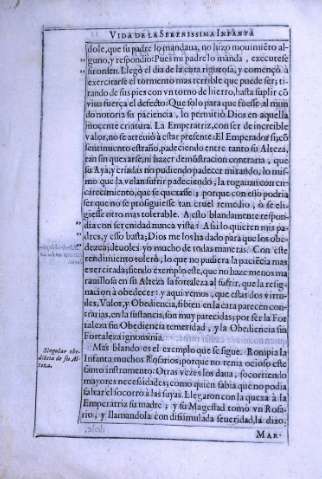 VIDA DE LA SERENISSIMA INFANTA
dole, que su padre lo mandaua, no hizo mouimiẽto al-
guno, y respondio: Pues mi padre lo mãda, executese
Llegó el dia de la cura rigurosa, y començò à
exercitarse el tormento mas terrible que puede ser; ti-
rando de sus pies con vn torno de hierro, hasta suplir cõ
viua fuerça el defecto: Que solo para que fuesse al mun
do notoria su paciencia, lo permitiò Dios en aquella
inocente criatura. La Emperatriz, con ser de increible
valor, no se atreuiò à estar presente. El Emperador si; cõ
sentimiento estraño, padeciendo entre tanto su Alteza,
tan sin quexarse, ni hazer demõstracion contraria, que
su Aya, y criadas no pudiendo mirando, lo mis-
mo que la velan sufrir padeciendo, la rogauan con en-
carecimiento, que se quexasse; porque con esso podria
ser que no se prosiguiesse tan cruel remedio, ò se eli-
giesse otro mas tolerable. A esto blandamente respondia
con serenidad nunca vista: Assi lo quieren mis pa-
dres, y esso basta; Dios me los ha dado para que los obe-
dezca; deuoles yo mucho de todas maneras. Con este
rendimiento tolerò, lo que no pudiera la paciẽcia mas
exercitada; siendo exemplo este, que no haze menos ma-
rauillosa en su Alteza la fortaleza al sufrir, que la resig-
nacion à obedecer: y aqui vemos, que estas dos virtu-
des, Valor, y Obediencia, si bien en la cara parecen con-
trarias, en la sustancia, son muy parecidas; por ser la For-
taleza sin Obediencia temeridad, y la Obediencia sin
Fortaleza ignominia.
Singular obe-
diẽcia de su Al-
teza.
Mas blando es el exemplo que se sigue. Rompia la
Infanta muchos Rosarios; porque no tenia ocioso este
santo instrumento. Otras vezes los daua, socorriendo
mayores necessidades; como quien sabia que no podia
faltar el socorro à las suyas. Llegaron con la quexa à la
Emperatriz su madre; y su Magestad tomò vn Rosa-
rio; y llamandola con dissimulada seueridad, la dixo.
MAR-